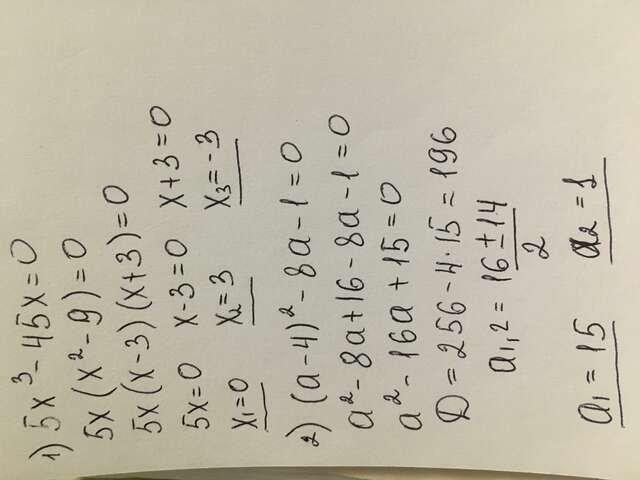 1) 5x³ - 45x = 0
5x(x² - 9) = 0
5x(x-3)(x+3) = 0
5x=0 x-3=0 x+3=0
x₁=0 x₂=3 x₃=-3
2) (a-4)² - 8a - 1 = 0
a² - 8a + 16 - 8a - 1 = 0
a² - 16a + 15 = 0
D = 256 - 4·15 = 196
a₁,₂ = (16 ± 14)/2
a₁ = 15 a₂ = 1